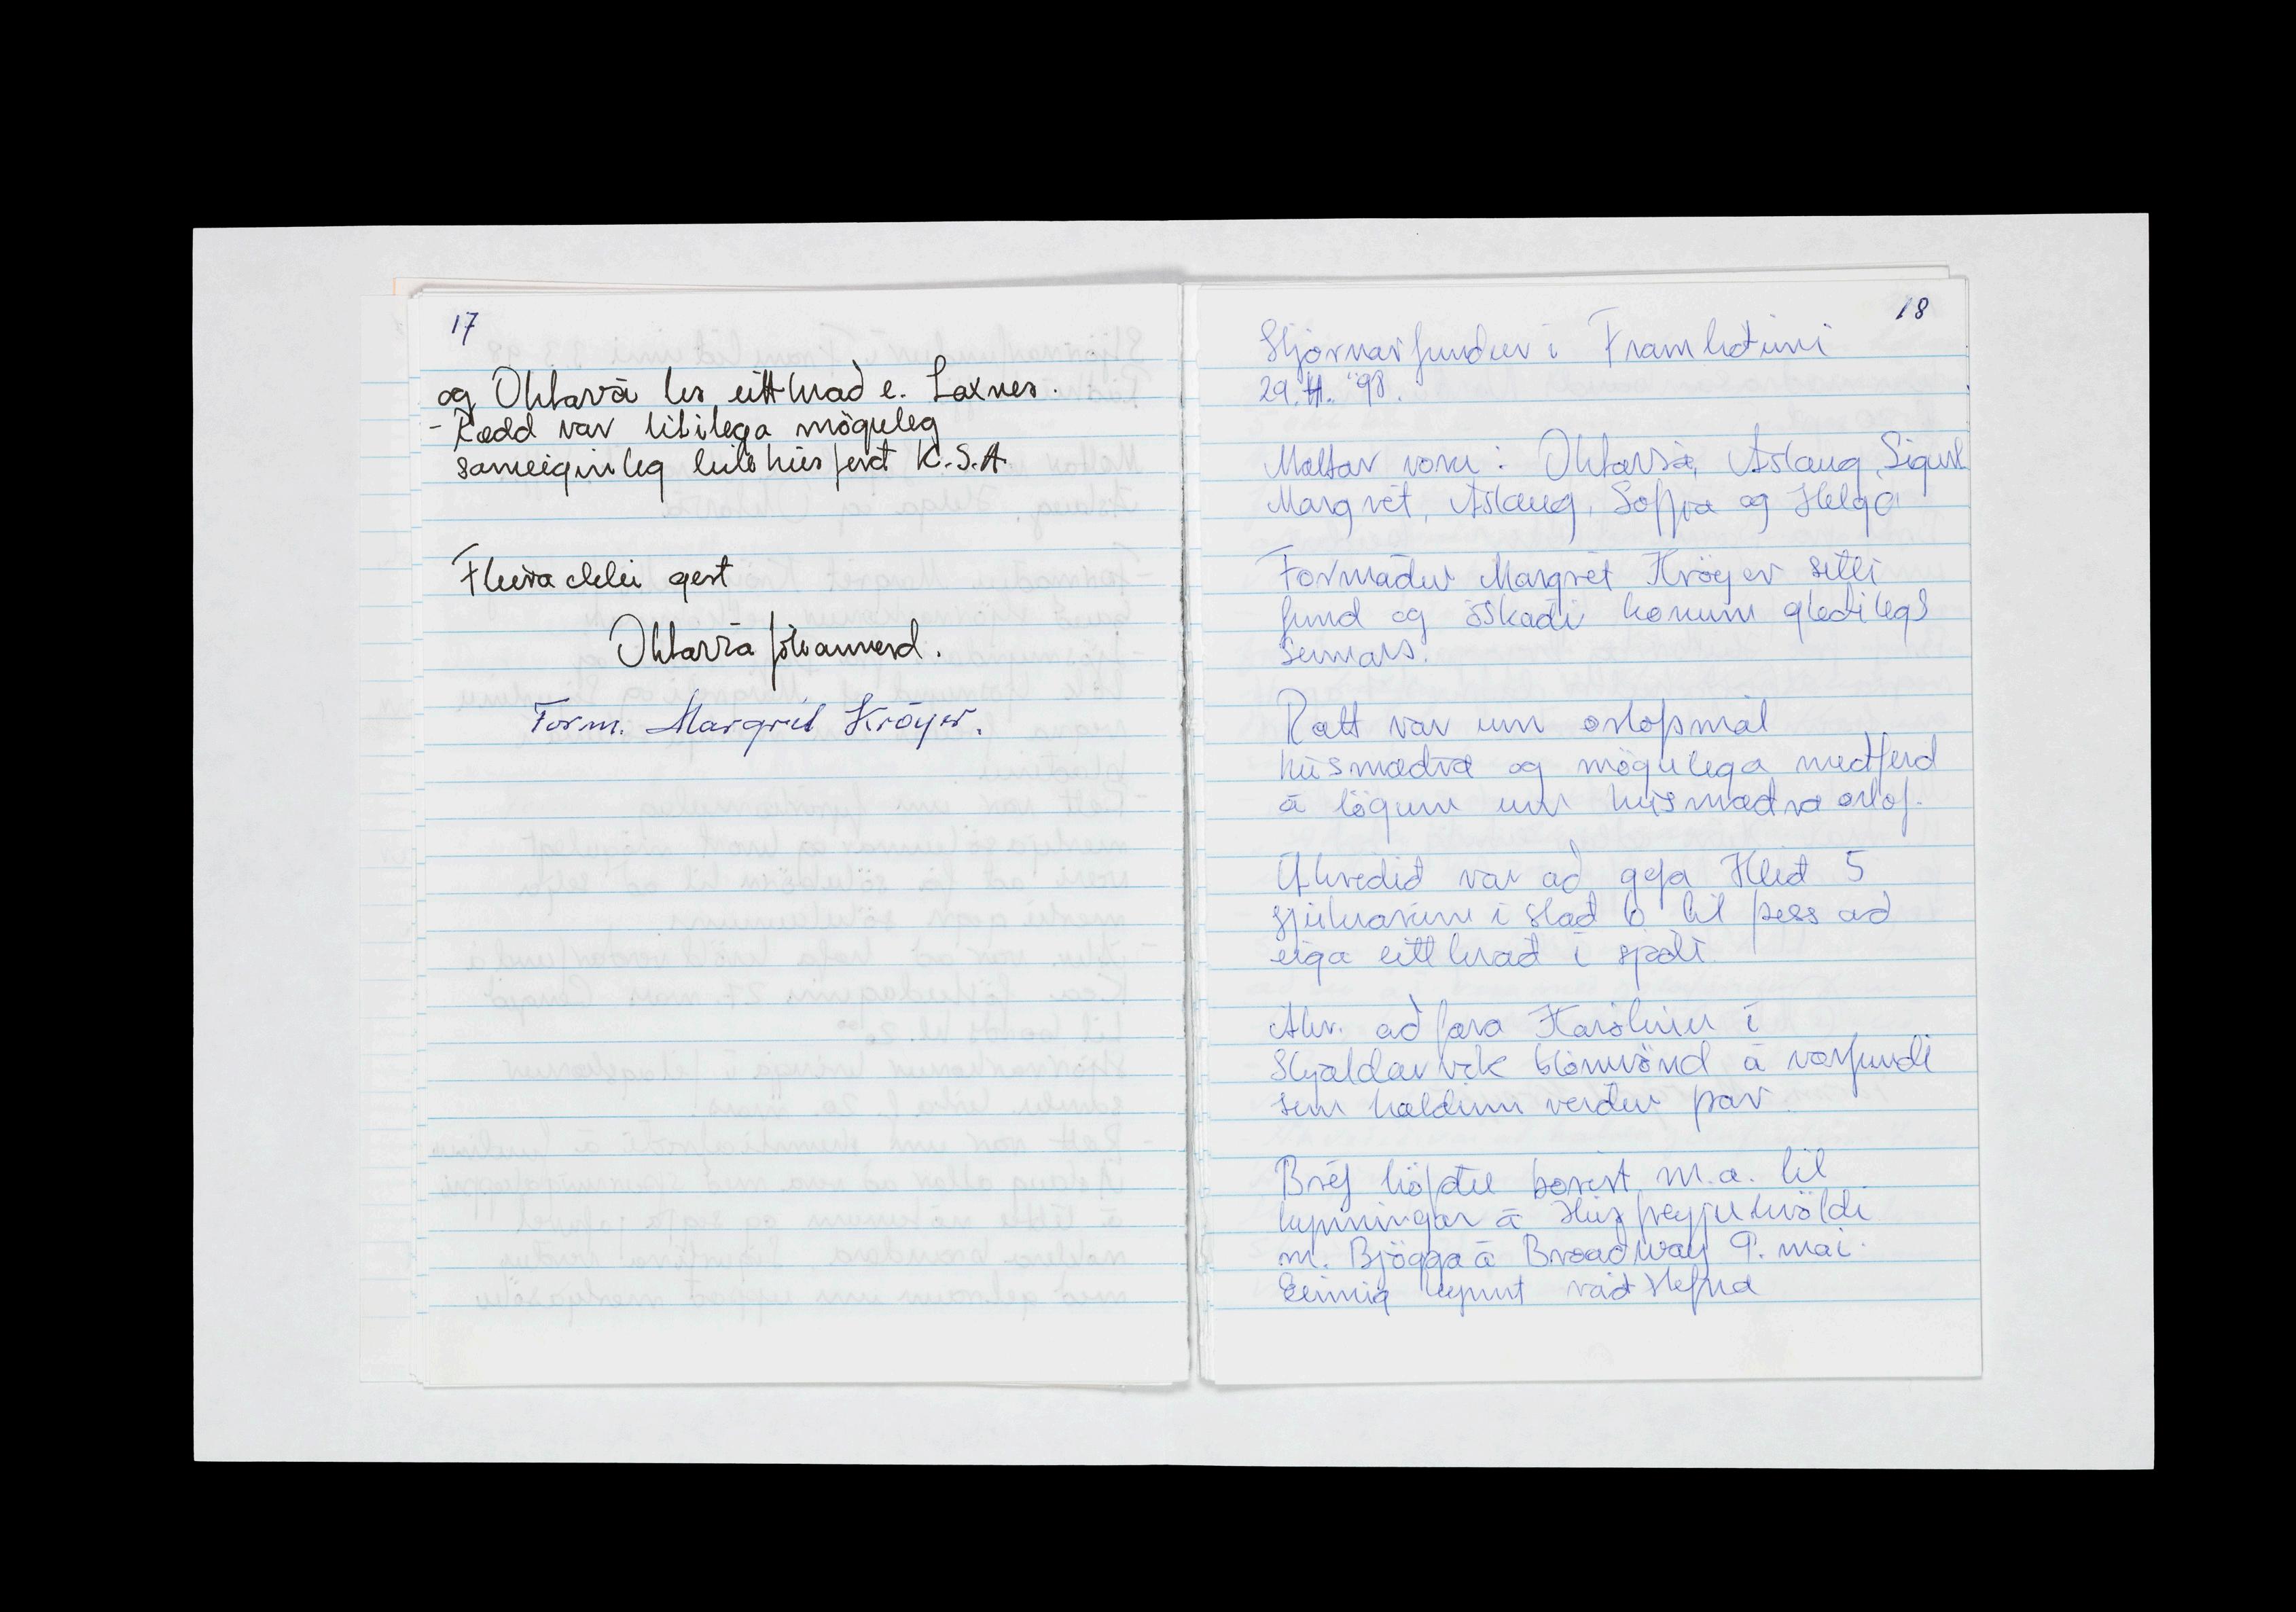 17
og Oktavía les eitthvað e. Laxnes.
- Rædd var lítilega möguleg
sameiginleg leikhúsferð K.S.A.
Fleira ekki gert
Oktavía Jóhannesd.
Form. Margrét Kröyer.
18
Stjórnarfundur í Framhótinni
29.4. '98.
Mættar voru: Oktavía, Áslaug, Sigurl
Margrét, Áslaug, Soffía og Helga
Formaður Margrét Kröyer setti
fund og óskaði konum gleðilegs
sumars.
Rætt var um orlofsmál
húsmæðra og mögulega meðferð
á lögum um húsmæðraorlof.
Ákveðið var að gefa Hlíð 5
í stað 6 til þess að
eiga eitthvað í sjóði
Ákv. að færa Karólínu í
Skjaldarvík blómvönd á vorfundi
sem haldinn verður þar.
Bréf höfðu borist m.a. til
kynningar á Húsfreyjukvöldi
m. Bjögga á Broadway 9. maí.
Einnig kynnt ráðstefna